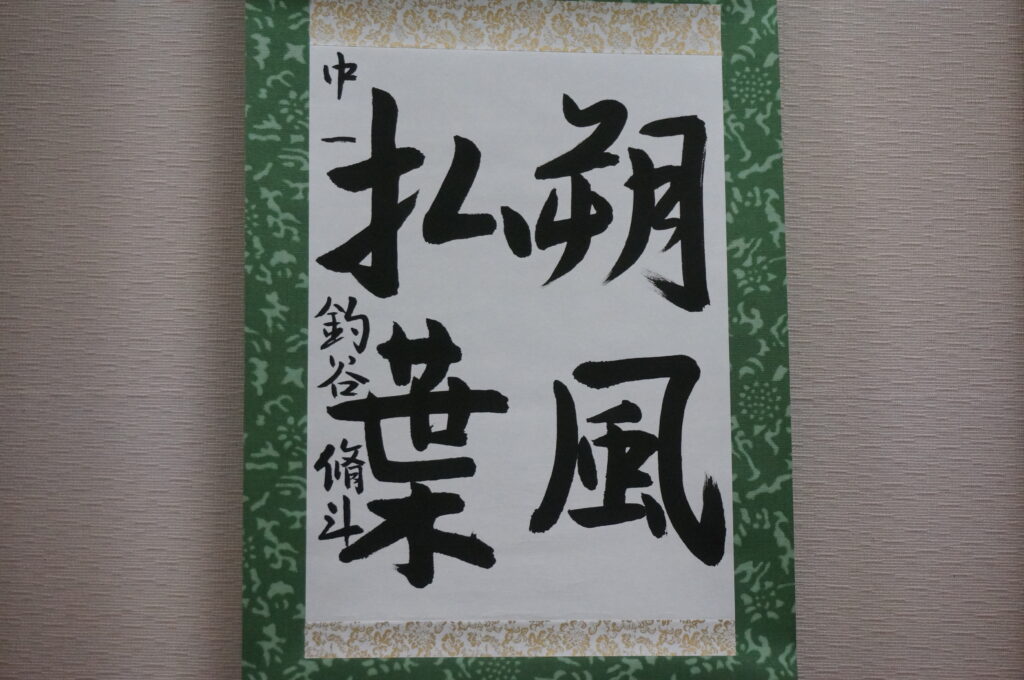 朔風
払葉
中一 釣谷脩斗